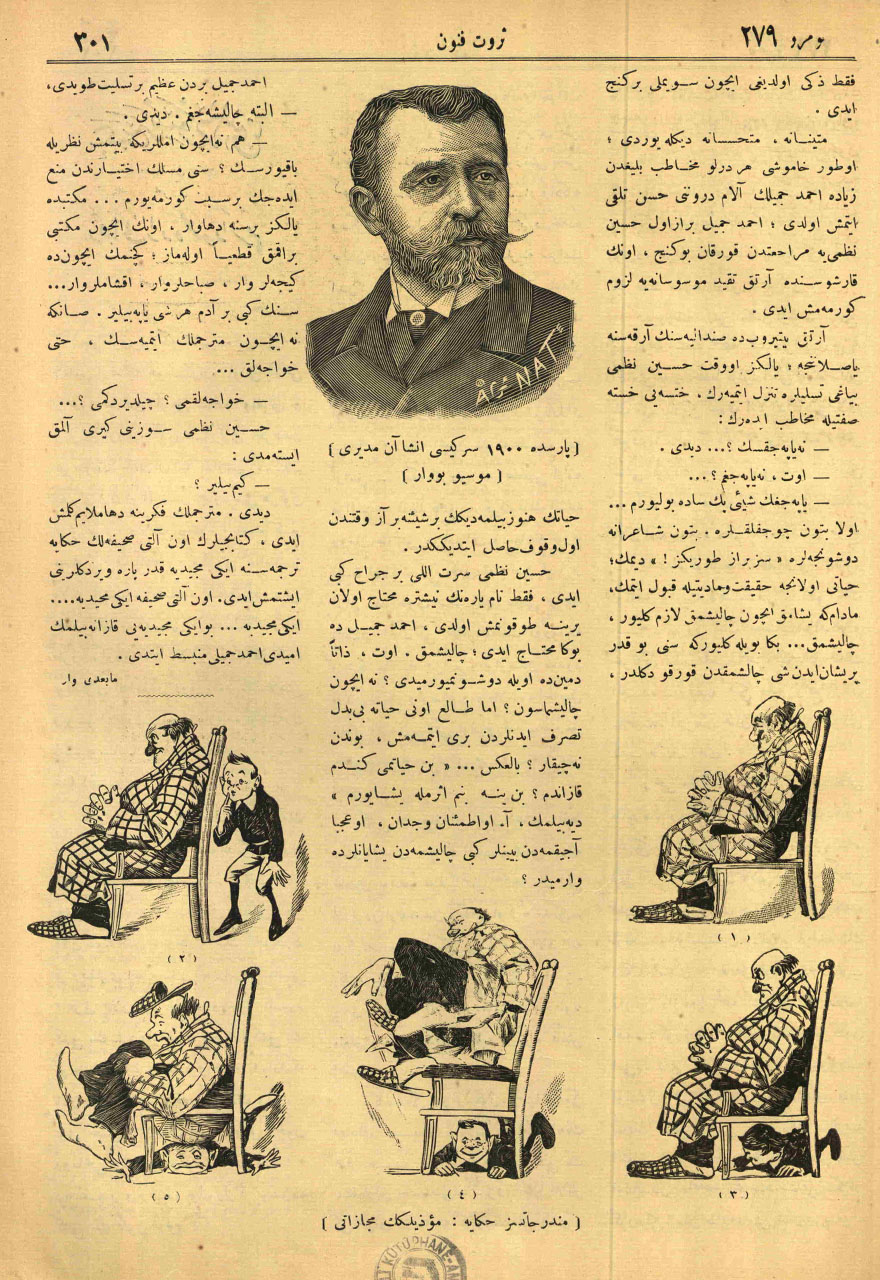 نومرو ٢٧٩
ثروت فنون
٣٠١
فقط ذكى اولديغى ايچون سويملى بركنج
ايدى .
متينانه ، متحسسانه ديكله يوردى ؛
اوطور خاموشى هر درلو مخاطب بليغدن
زياده احمد جميلك آلام دروننى حسن تلقى
ايتمش اولدى ؛ احمد جميل برازاول حسين
نظمى‌يه مراجعتدن قورقان بوكنج ، اونك
قارشوسنده آرتق تقيد موسوسانه‌يه لزوم
كورمه‌مش ايدى .
آرتق بيتيروب‌ده صنداليه‌سنك آرقه‌سنه
ياصلاننجه ؛ يالكز اووقت حسين نظمى
بياغى تسليلره تنزل ايتميه‌رك ، خسته‌يى خسته
صفتيله مخاطب ايده‌رك :
— نه‌ياپه‌جقسك ؟... ديدى .
— اوت ، نه‌ياپه‌جغم ؟...
— ياپه‌جغك شيئى پك ساده بوليورم ...
اولا بتون چوجقلقلره . بتون شاعرانه
دوشونجه‌لره « سز براز طوريكز ! » ديمك ؛
حياتى اولانجه حقيقت وماديتيله قبول ايتمك ،
مادام‌كه يشامق ايچون چاليشمق لازم كليور ،
چاليشمق... بكا بويله كليوركه سنى بو قدر
پريشان‌ايدن‌شى چاليشمقدن قورقو دكلدر ،
[ پارسده ١٩٠٠ سركيسى انشاآن مديرى ]
( موسيو بووار )
حياتك هنوز بيلمه‌ديكك برشيئنه بر آز وقتندن
اول وقوف حاصل ايتديككدر .
حسين نظمى سرت اللى بر جراح كبى
ايدى ، فقط تام ياره‌نك نيشتره محتاج اولان
يرينه طوقونمش اولدى ، احمد جميل ده
بوكا محتاج ايدى ؛ چاليشمق . اوت ، ذاتاً
دمين‌ده اويله دوشونميورميدى ؟ نه ايچون
چاليشماسون ؟ اما طالع اونى حياته بى‌بدل
تصرف ايدنلردن برى ايتمه‌مش ، بوندن
نه‌چيقار ؟ بالعكس ... « بن حياتمى كندم
قازاندم ؟ بن ينه بنم اثرمله يشايورم »
ديه‌بيلمك ، آ. او اطمئنان وجدان ، او عجبا
آجيقمه‌دن يينلر كبى چاليشمه‌دن يشايانلرده
وارميدر ؟
احمدجميل بردن عظيم بر تسليت طويدى ،
— البته چاليشه‌جغم . ديدى .
— هم نه‌ايچون امللريكه بيتمش نظريله
باقيورسك ؟ سنى مسلك اختيارندن منع
ايده‌جك برسبب كورمه‌يورم ... مكتبده
يالكز برسنه دهاوار ، اونك ايچون مكتبى
براقمق قطعياً اوله‌ماز ؛ كچنمك ايچون‌ده
كيجه‌لر وار ، صباحلر وار ، اقشاملر وار...
سنك كبى بر آدم هر شى ياپه‌بيلير . صانكه
نه ايچون مترجملك ايتميه‌سك ، حتى
خواجه‌لق ...
— خواجه‌لقمى ؟ چيلديردكمى ؟...
حسين نظمى سوزينى كيرى آلمق
ايسته‌مدى :
— كيم بيلير ؟
ديدى . مترجملك فكرينه دهاملايم كلمش
ايدى ، كتابجيلرك اون آلتى صحيفه‌لك حكايه
ترجمه‌سنه ايكى مجيديه قدر پاره ويردكلرينى
ايشتمش‌ايدى. اون آلتى صحيفه ايكى مجيديه....
ايكى مجيديه ... بوايكى مجيديه‌يى قازانه‌بيلمك
اميدى احمدجميلى منبسط ايتدى .
مابعدى وار
ÅRCNAT
( ١ )
( ٢ )
( ٣ )
( ٤ )
( ٥ )
[ مندرجاتسز حكايه : مؤذيلكك مجازاتى ]
KÜTÜPHANE-AN